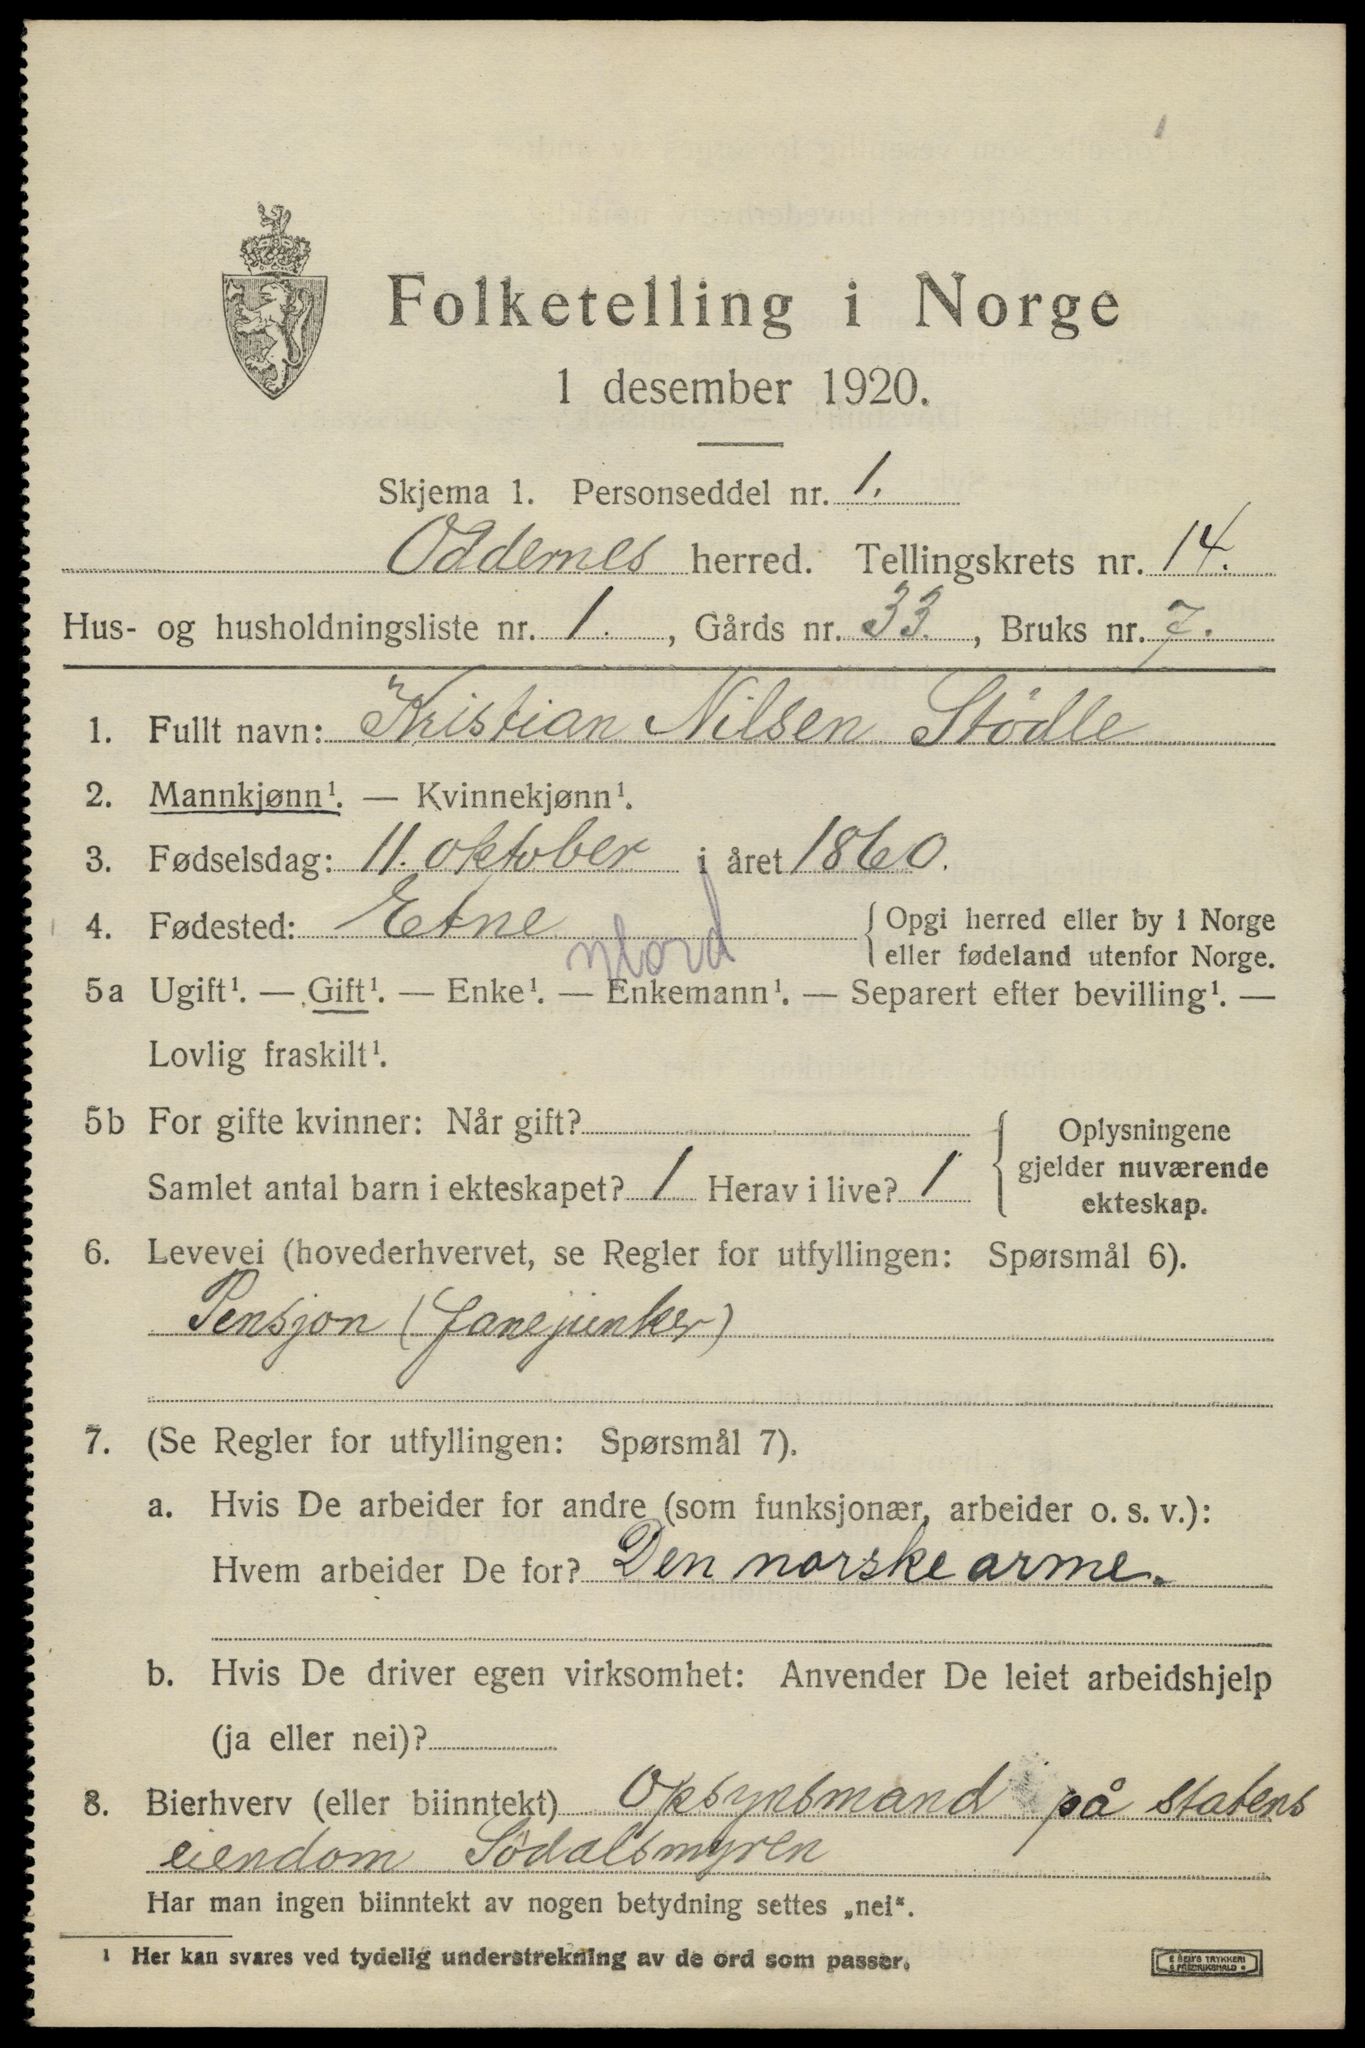 Folketelling i Norge
1 desember 1920.
Skjema 1. Personseddel nr. 1.
Oddernes herred. Tellingskrets nr. 14.
Hus- og husholdningsliste nr. 1. , Gårds nr. 33. , Bruks nr. 7.
1. Fullt navn: Kristian Nilsen Stödle
2. Mannkjønn¹. — Kvinnekjønn¹.
3. Fødselsdag: 11. oktober i året 1860.
4. Fødested: Etne { Opgi herred eller by i Norge
eller fødeland utenfor Norge.
5a Ugift¹. — Gift¹. — Enke¹. — Enkemann¹. — Separert efter bevilling¹. —
Lovlig fraskilt¹.
5b For gifte kvinner: Når gift?
Samlet antal barn i ekteskapet? 1 Herav i live? 1
Oplysningene
gjelder nuværende
ekteskap.
6. Levevei (hovederhvervet, se Regler for utfyllingen: Spørsmål 6).
Pensjon (fanejunker)
7. (Se Regler for utfyllingen: Spørsmål 7).
a. Hvis De arbeider for andre (som funksjonær, arbeider o. s. v.):
Hvem arbeider De for? Den norske arme.
b. Hvis De driver egen virksomhet: Anvender De leiet arbeidshjelp
(ja eller nei)?
8. Bierhverv (eller biinntekt) Opsynsmand på statens
eiendom Södalsmyren
Har man ingen biinntekt av nogen betydning settes „nei“.
¹ Her kan svares ved tydelig understrekning av de ord som passer.
E SEMS TRYKKERI
FREDRIKSHALD